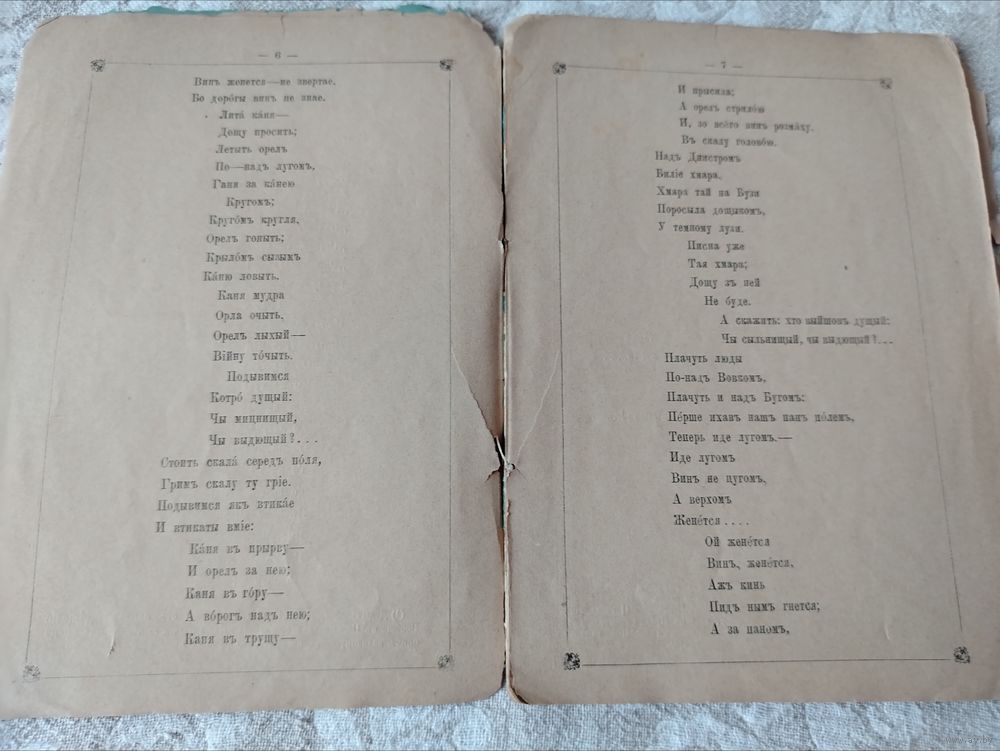 — 6 —
Винъ женется—не звертае.
Бо доро́гы винъ не знае.
Лита́ ка́ня—
Дощу просить;
Летыть орелъ
По—надъ лугомъ,
Ганя за ка́нею
Кругомъ;
Круго́мъ кругля,
Орелъ гоныть;
Крыло́мъ сызымъ
Ка́ню ловыть.
Каня мудра
Орла очыть,
Орелъ лыхый—
Війну то́чыть.
Подывимся
Котро́ дущый:
Чы мицнищый,
Чы выдющый?...
Стоить скала́ середъ по́ля,
Гримъ скалу ту гріе.
Подывимся якъ втика́е
И втикаты вміе:
Ка́ня въ прырву—
И орелъ за нею;
Каня въ го́ру—
А во́рогъ надъ нею;
Каня въ трущу—
— 7 —
И прысила;
А орелъ стрило́ю
И, зо все́го винъ розма́ху.
Въ скалу голово́ю.
Надъ Днистромъ
Билі́е хмара,
Хмара тай на Бузи
Поросыла дощыкомъ,
У темному лузи.
Писна уже
Тая хмара;
Дощу зъ ней
Не буде.
А скажить: хто выйшовъ дущый:
Чы сыльнищый, чы выдющый?...
Плачуть люды
По-надъ Вовкомъ,
Плачуть и надъ Бугомъ:
Пе́рше ихавъ нашъ панъ по́лемъ,
Теперь иде лугомъ.—
Иде лугомъ
Винъ не цугомъ,
А верхомъ
Жене́тся....
Ой жене́тся
Винъ, жене́тся,
Ажъ кинь
Пидъ нымъ гнется;
А за паномъ,